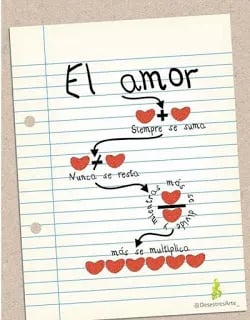 El amor
+
Siempre se suma
Nunca se resta
mientras más se divide
más se multiplica
@DesestresArte_